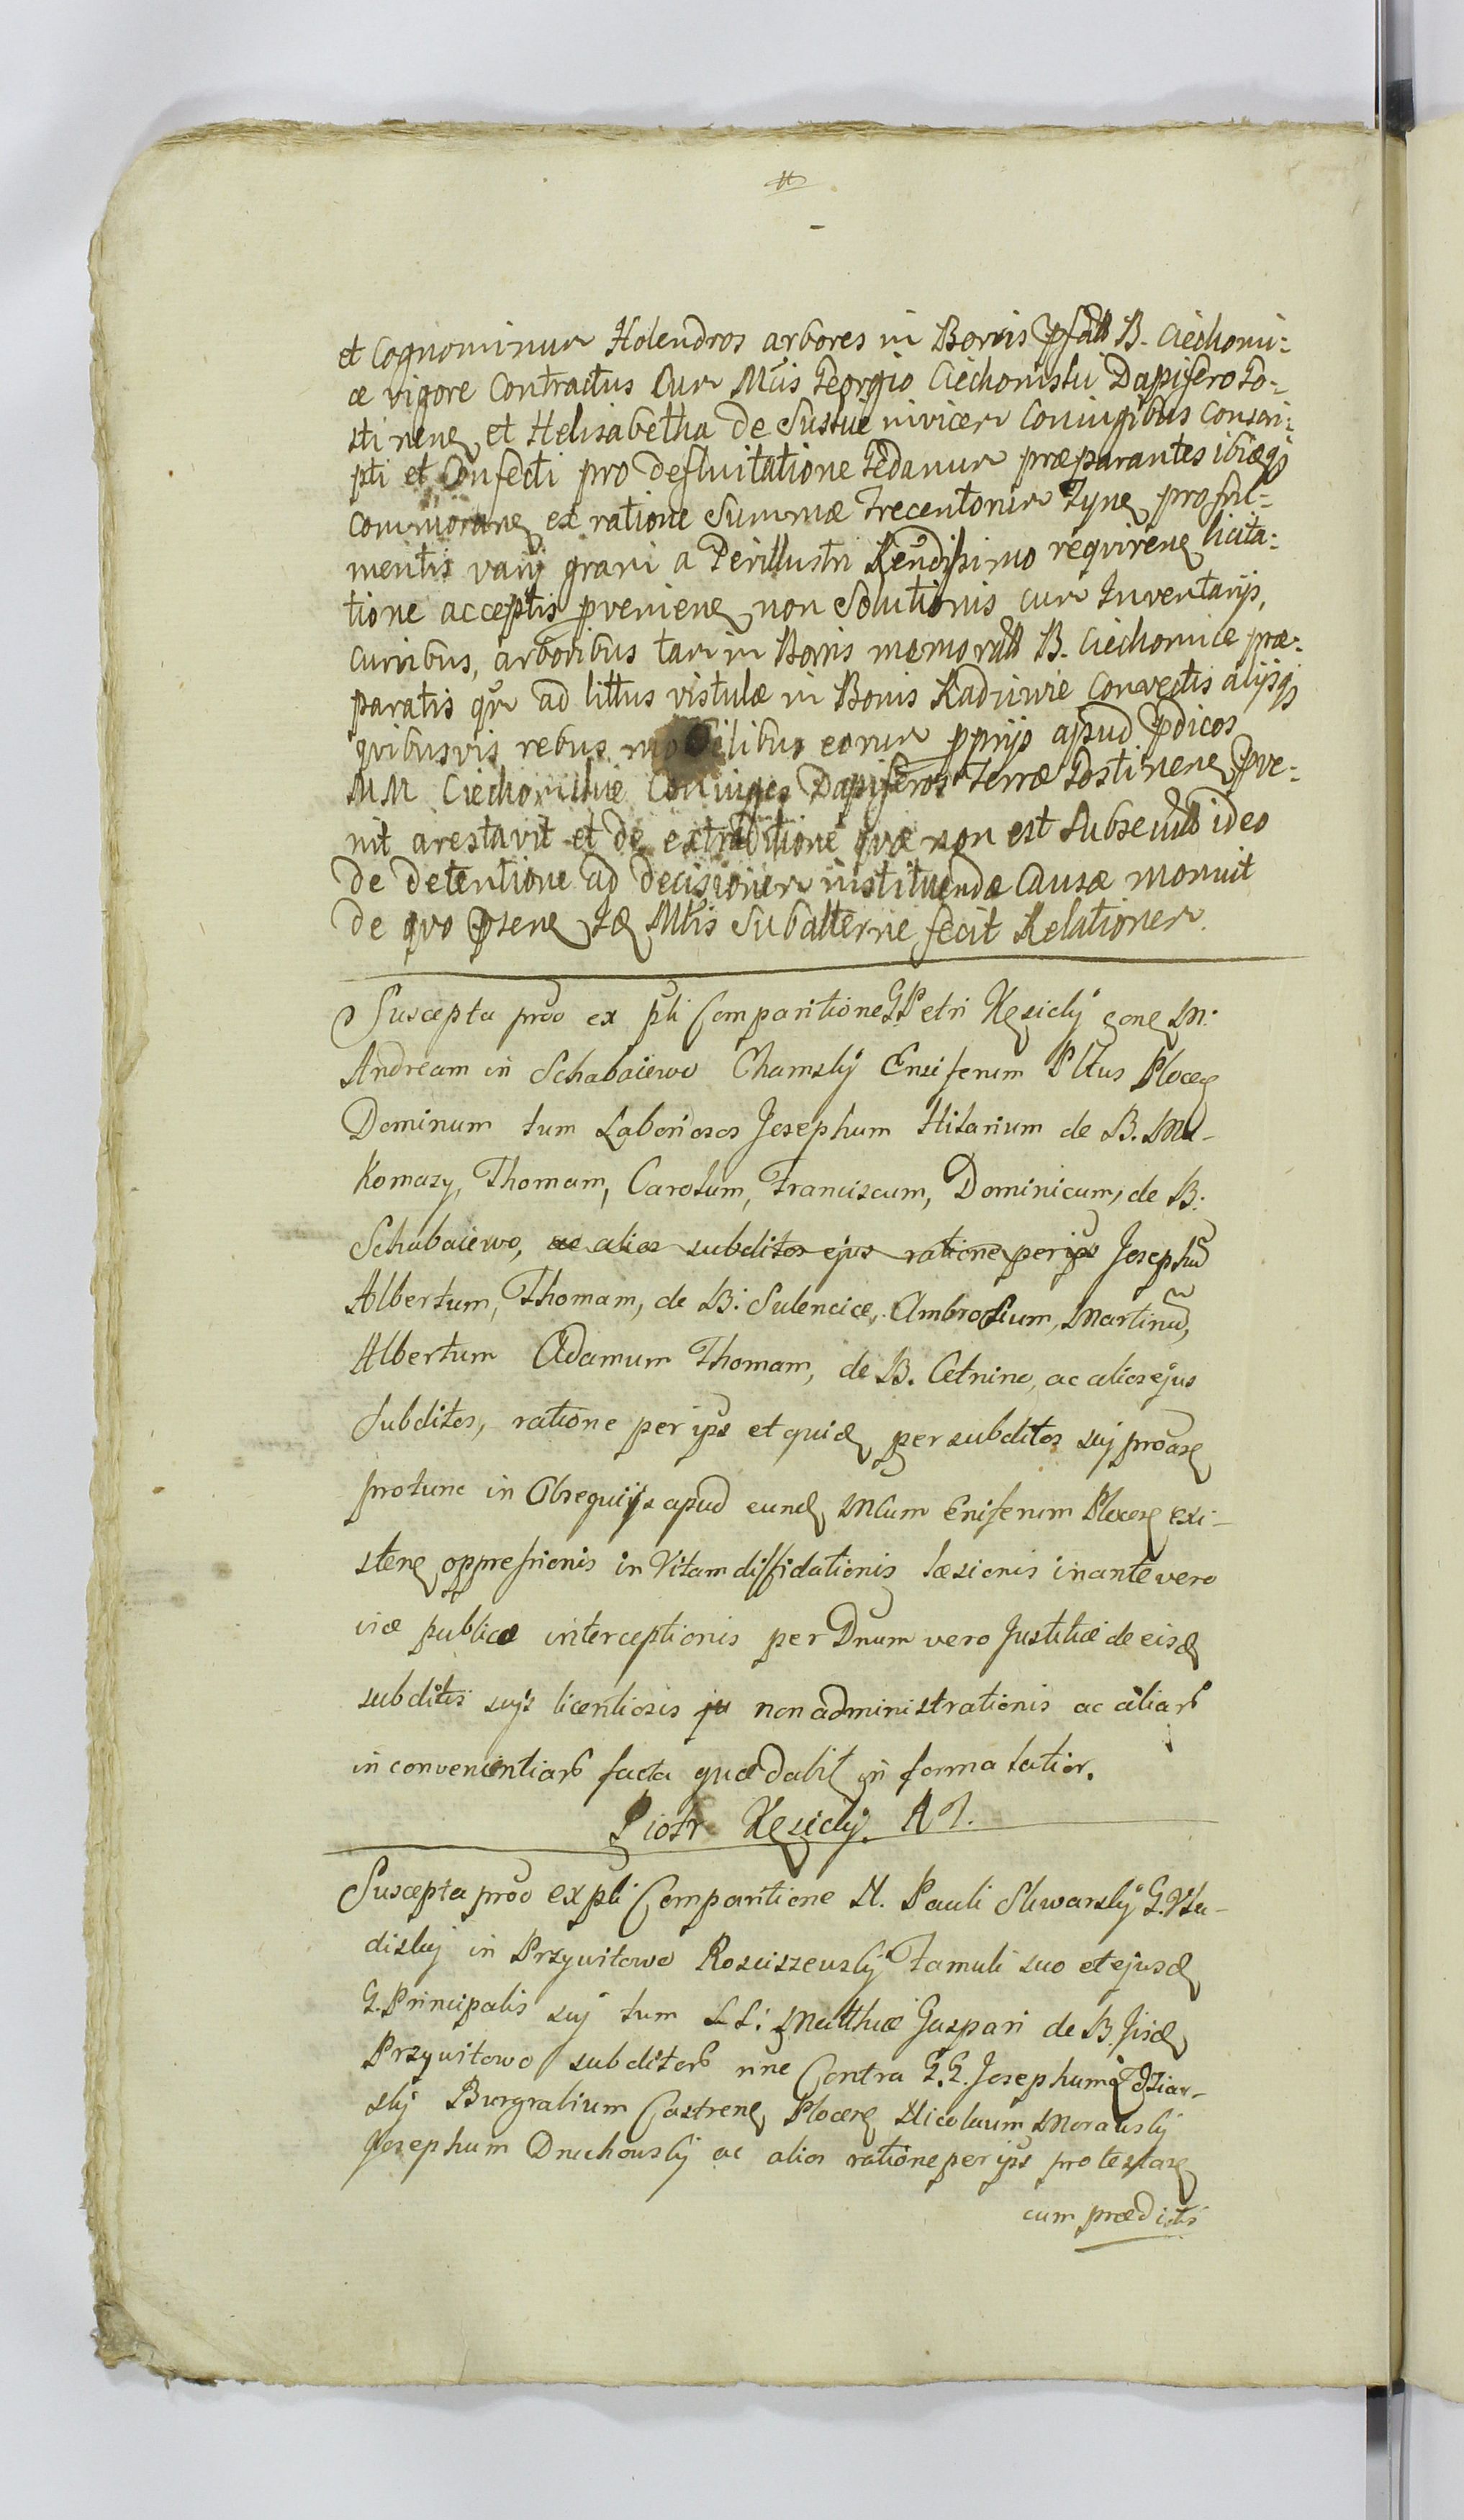 et Cognominum Holendros arbores in Bonis pfatt B. Ciechomi:
æ vigore Contractus Cum Mcis Georgio Ciechomski Dapifero Go-
stinen et Helisabetha de Suskie invicem Coniugibus Conscri:
pti et Confecti pro defluitatione Gedanum præparantes ibidēqȝ
commoran ex ratione Summæ Trecentorum Tyn pro ful-
mentis varij grani a Perillustri Rendissimo requiren licita:
tione acceptis pvenien non Solutionis cum Inventarijs,
curribus, arboribus tam in Bonis memoratt B. Ciechomice præ:
paratis qm ad littus vistulæ in Bonis Radziwie Convectis alijsqȝ
quibusvis rebus mobilibus eorum pprijs apud pdicos
MM Ciechomskie Coniuges Dapiferos Terræ Gostinen pve:
nit arestavit et de extraditione quæ non est Subsecuta ideo
de detentione ad decisionem instituendæ Causæ monuit
de quo psen Id Mtis Subalterne fecit Relationem.
Suscepta pro ex pli Comparitione G. Petri Kęsicky con M.
Andream in Schabaiewo Chamsky Ensiferum Pltus Plocen
Dominum tum Laboriosos Josephum Hilarium de B. Mo-
komazy, Thomam, Carolum, Franciscum, Dominicum, de B.
Schabaiewo, ac alios subditos ejus ratione per ips Josephū
Albertum, Thomam, de B. Sulencice, Ambrosium, Martinū,
Albertum Adamum Thomam, de B. Cetnino, ac alios ejus
subditos, ratione per ips et quid per subditos suj proas
protunc in Obsequijs apud eund Mcum Eniferum Plocen exi-
sten oppressionis in Vitam diffidationis læsionis inante vero
viæ publicæ interceptionis per Dnum vero Justitiæ de eisd
subditis sujs licentiosis ju non administrationis ac aliar
inconvenientiar facta quæ dabit in forma latior.
Piotr Kęsicky.
Suscepta pro ex pli Comparitione N. Pauli Skwarsky G. Vla-
dislaj in Przywitowo Rosciszewsky Famuli suo et ejusd
G. Principalis suj tum LL. Matthiæ Gaspari de B. Jisd
Przywitowo subditor nne Contra G.G. Josephum Zdziar-
sky Burgrabium Castren Plocen Nicolaum Morawsky
Josephum Druchowsky ac alios ratione per ips protestan
cum prædictis